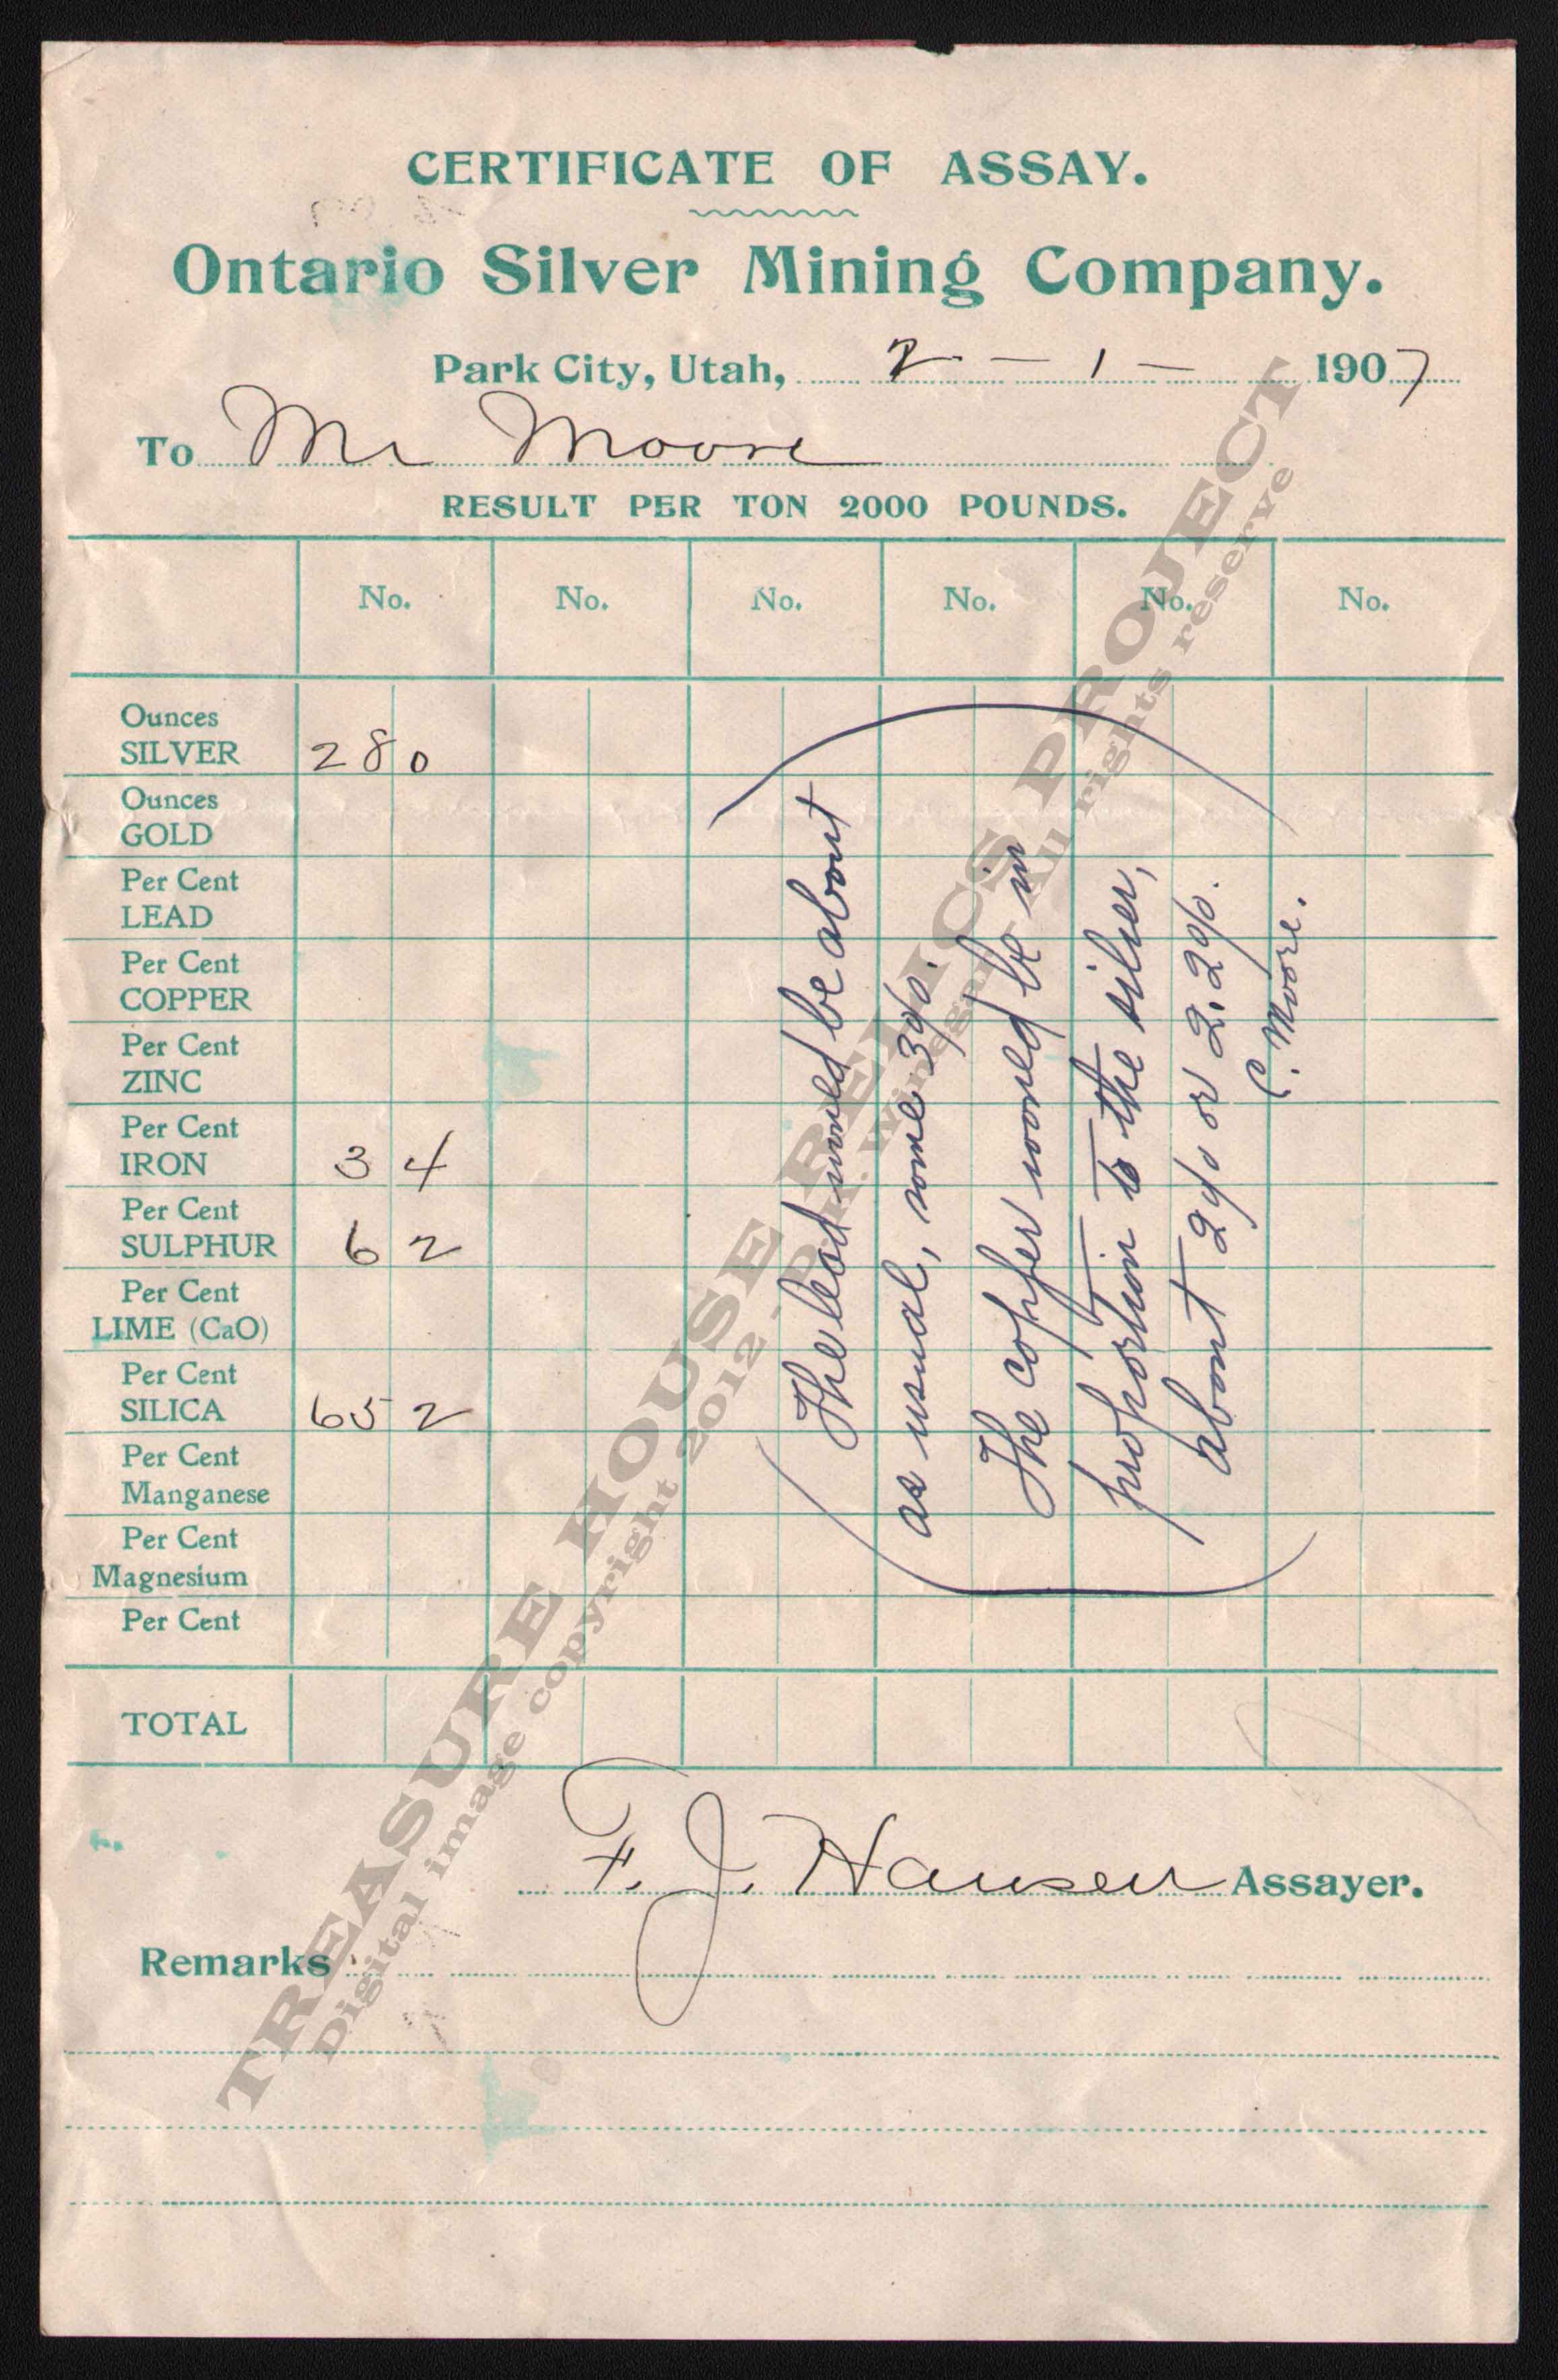 CERTIFICATE OF ASSAY.
Ontario Silver Mining Company.
Park City, Utah, 2 - 1 - 1907
To Mr Moore
RESULT PER TON 2000 POUNDS.
No. No. No. No. No. No.
Ounces
SILVER 28 0
Ounces
GOLD
Per Cent
LEAD
Per Cent
COPPER
Per Cent
ZINC
Per Cent
IRON 3 4
Per Cent
SULPHUR 6 2
Per Cent
LIME (CaO)
Per Cent
SILICA 65 2
Per Cent
Manganese
Per Cent
Magnesium
Per Cent
TOTAL
The lead would be about
as usual, some 3%.
The copper would be in
proportion to the silver,
about 2% or 2.2%.
C. Moore.
F. J. Hansen Assayer.
Remarks
TREASURE HOUSE RELICS PROJECT
Digital image copyright 2012 - All rights reserve